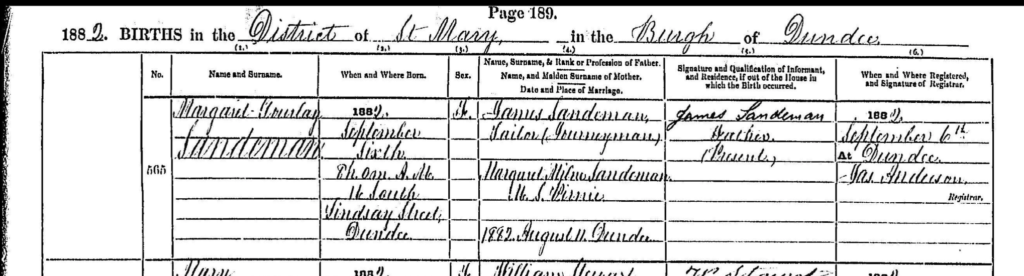 Page 189.
1882. BIRTHS in the District of St Mary, in the Burgh of Dundee
(1.) (2.) (3.) (4.) (5.) (6.)
No. Name and Surname. When and Where Born. Sex. Name, Surname, & Rank or Profession of Father. Name, and Maiden Surname of Mother. Date and Place of Marriage. Signature and Qualification of Informant, and Residence, if out of the House in which the Birth occurred. When and Where Registered, and Signature of Registrar.
Margaret Gourlay 1882. F. James Sandeman, James Sandeman 1882
Sandeman September Tailor (Journeyman) Father September 6th
Sixth (Present) At Dundee
565 0m. A.M. Margaret Milne Sandeman Jas Anderson,
16 South M. S. Pirnie Registrar.
Lindsay Street,
Dundee 1882. August 11. Dundee
Mary 1882 F. William